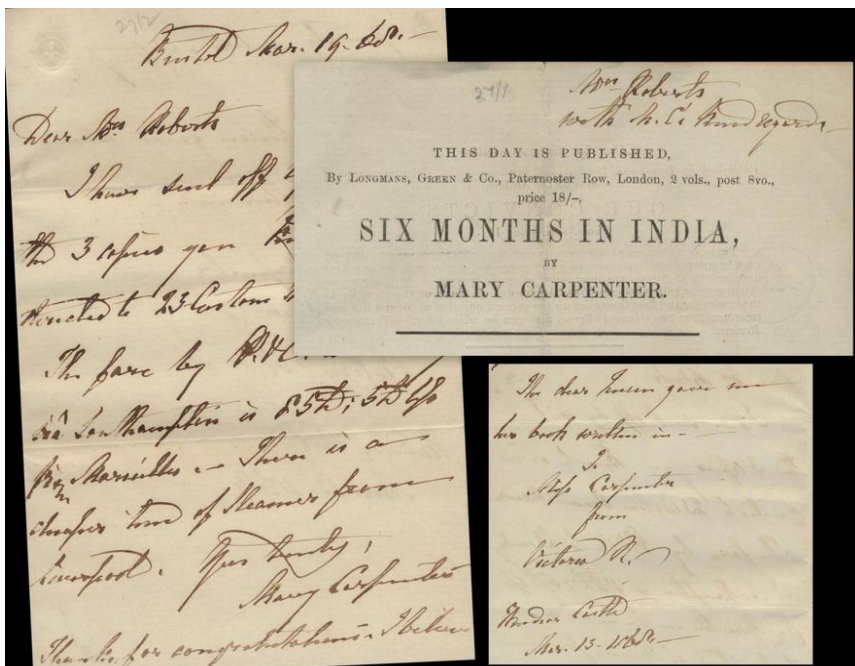 27/2
Bristol Mar. 19. 68.
Dear Mrs Roberts
I have sent off
the 3 copies you
directed to 23 Eastern
The fare by P. & O.
via Southampton is 85£; 5£ less
from Marseilles. There is a
cheaper line of Steamers from
Liverpool. Yrs truly,
Mary Carpenter
Thanks for congratulations. I believe
27/1
Mrs Roberts
with M. C's kind regards
THIS DAY IS PUBLISHED,
By LONGMANS, GREEN & Co., Paternoster Row, London, 2 vols., post 8vo.,
price 18/–,
SIX MONTHS IN INDIA,
BY
MARY CARPENTER.
The dear Queen gave me
her book written in –
To
Miss Carpenter
from
Victoria R.
Windsor Castle
Mar. 13. 1868.